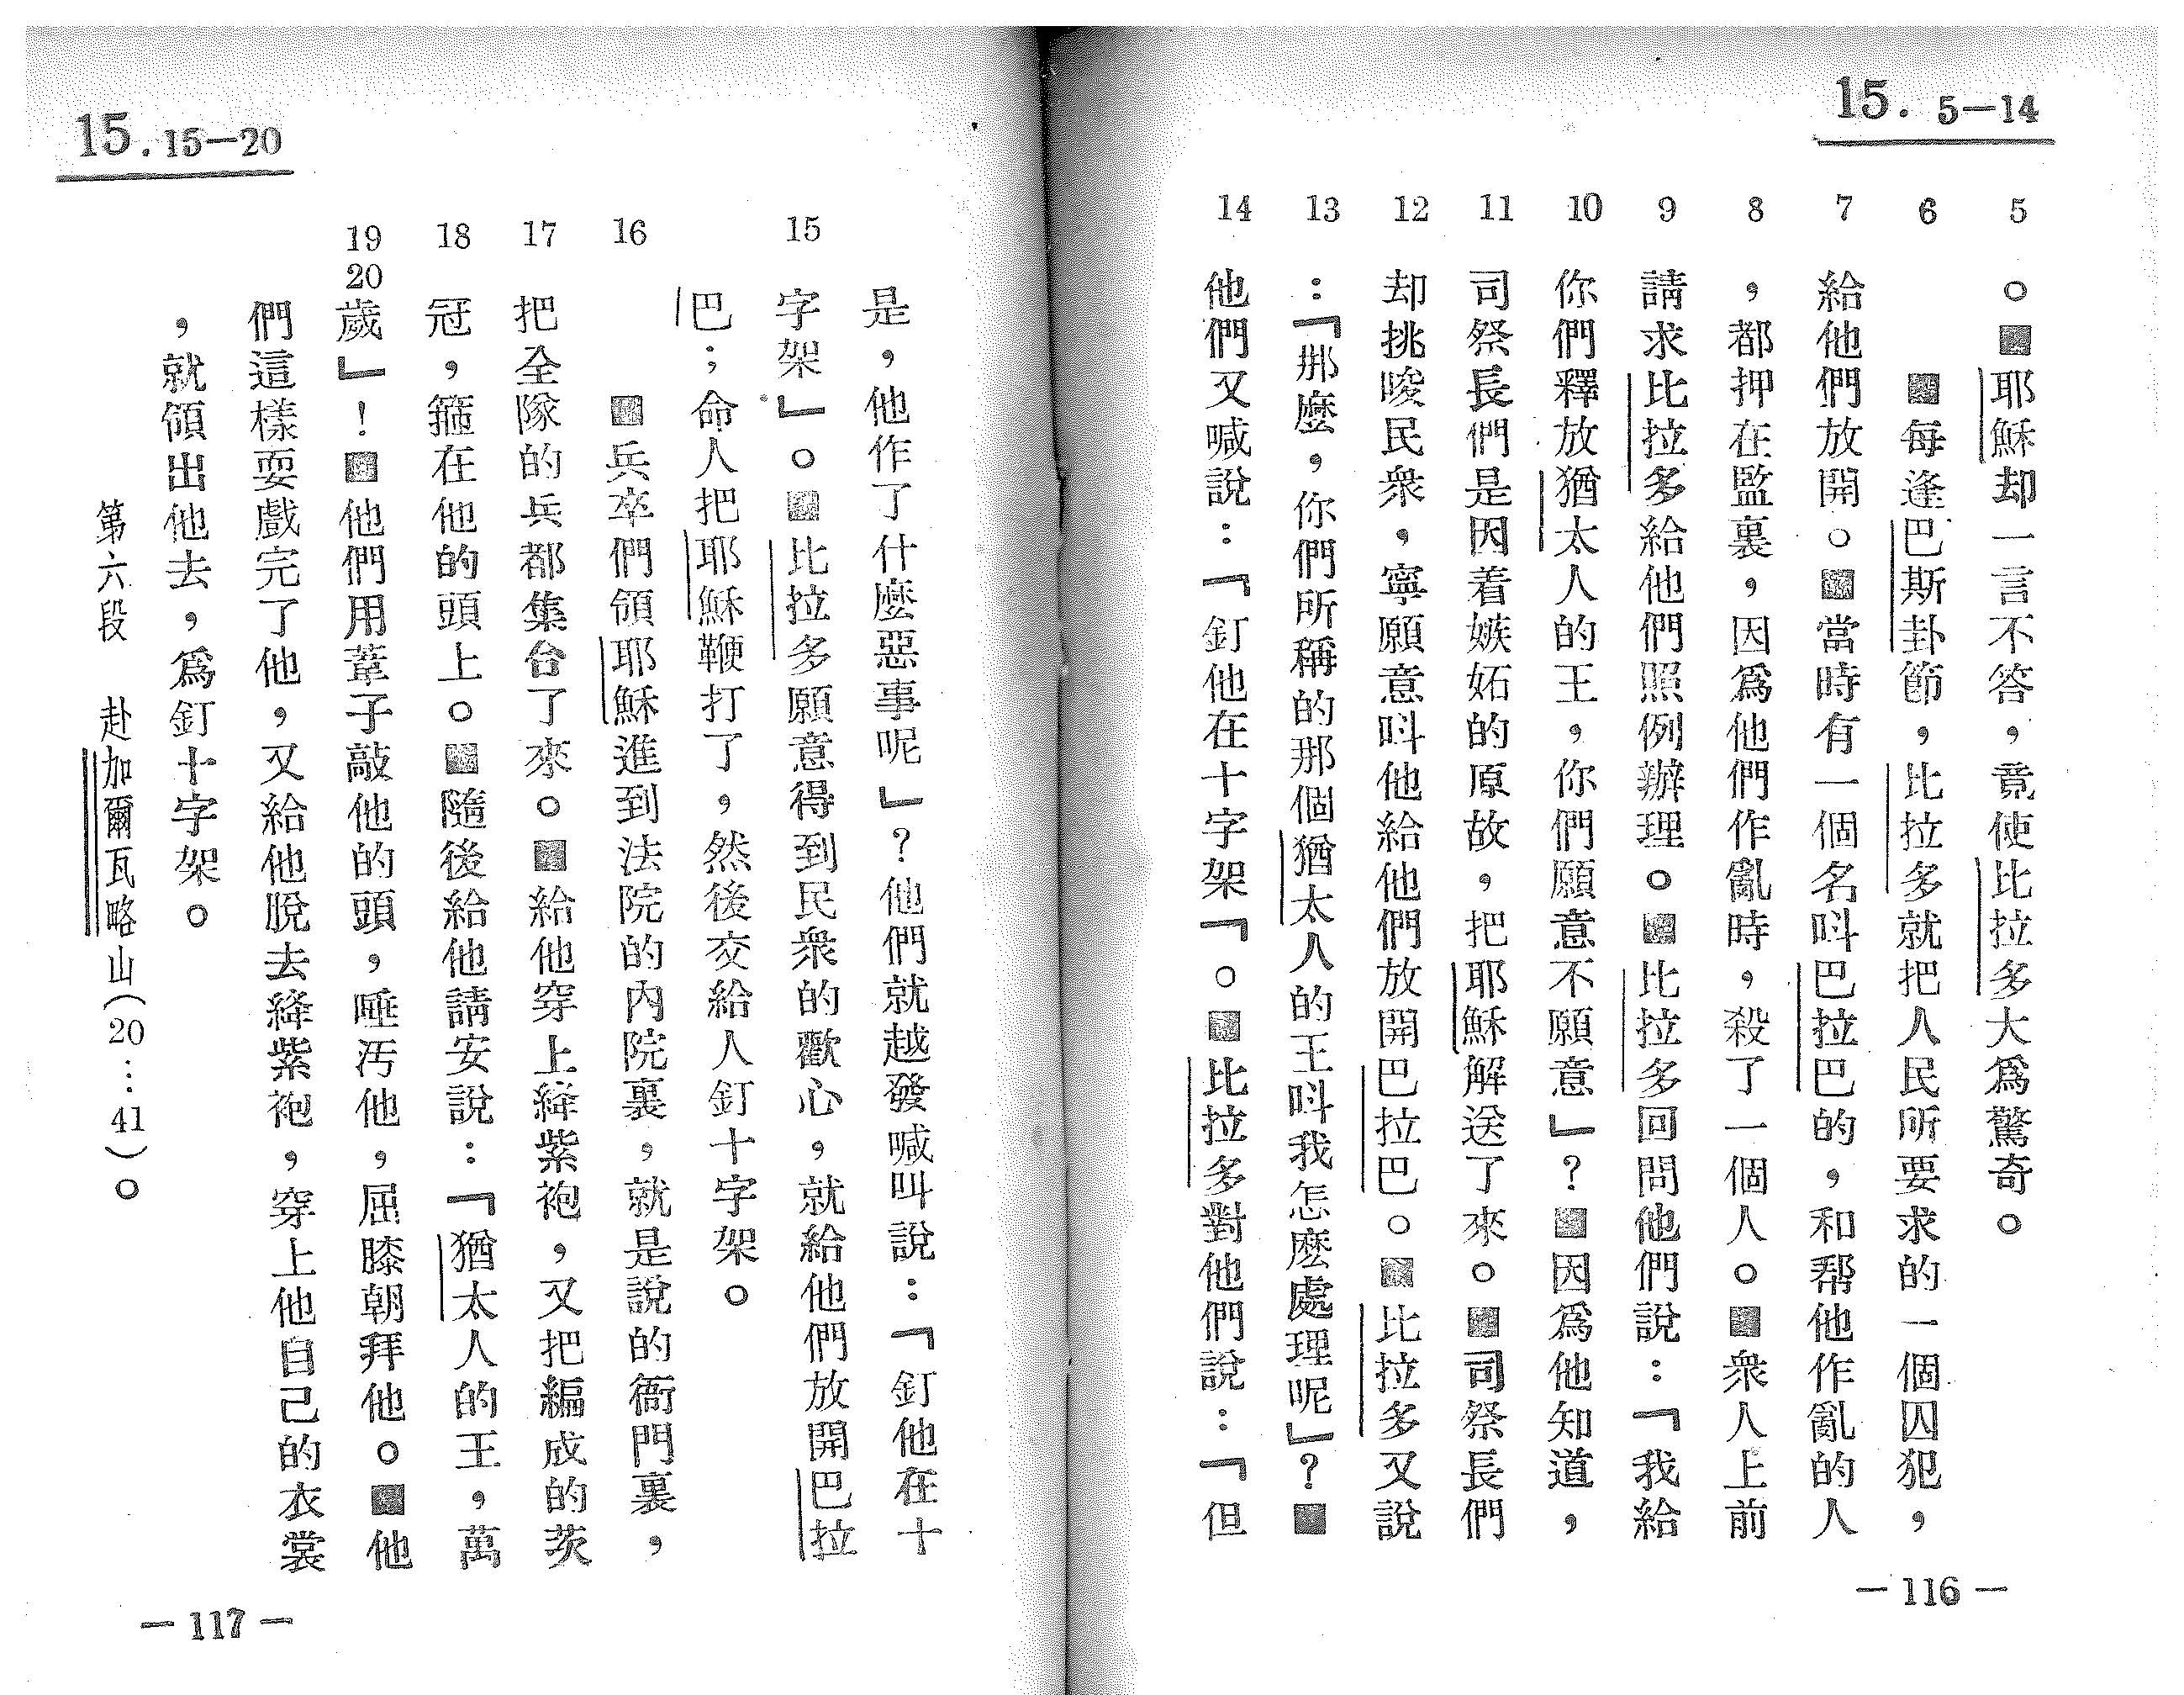 15. 5—14
5
。■耶穌却一言不答，竟使比拉多大爲驚奇。
6
■每逢巴斯卦節，比拉多就把人民所要求的一個囚犯，
7
給他們放開。■當時有一個名呌巴拉巴的，和帮他作亂的人
8
，都押在監裏，因爲他們作亂時，殺了一個人。■衆人上前
9
請求比拉多給他們照例辦理。■比拉多回問他們說：「我給
10
你們釋放猶太人的王，你們願意不願意」？■因爲他知道，
11
司祭長們是因着嫉妬的原故，把耶穌解送了來。■司祭長們
12
却挑唆民衆，寧願意呌他給他們放開巴拉巴。■比拉多又說
13
：「那麼，你們所稱的那個猶太人的王呌我怎麽處理呢」？■
14
他們又喊說：「釘他在十字架「。■比拉多對他們說：「但
—116—
15. 15—20
是，他作了什麼惡事呢」？他們就越發喊叫說：「釘他在十
15
字架」。■比拉多願意得到民衆的歡心，就給他們放開巴拉
巴；命人把耶穌鞭打了，然後交給人釘十字架。
16
■兵卒們領耶穌進到法院的內院裏，就是說的衙門裏，
17
把全隊的兵都集台了來。■給他穿上絳紫袍，又把編成的茨
18
冠，箍在他的頭上。■隨後給他請安說：「猶太人的王，萬
19
20
歲」！■他們用葦子敲他的頭，唾汚他，屈膝朝拜他。■他
們這樣耍戲完了他，又給他脫去絳紫袍，穿上他自己的衣裳
，就領出他去，爲釘十字架。
第六段 赴加爾瓦略山（20…41）。
—117—